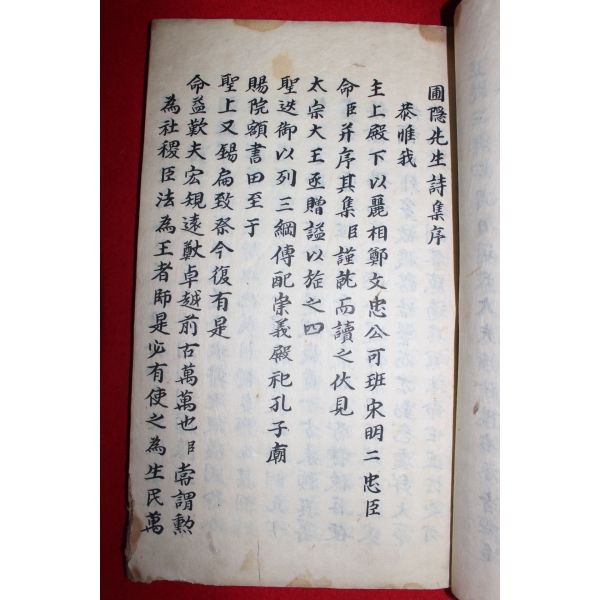 圃隐先生詩集序
恭惟我
主上殿下以麗相鄭文忠公可班宋明二忠臣
命臣并序其集臣謹盥而讀之伏見
太宗大王亟贈謚以旌之四
聖迭御以列三綱傳配崇義殿祀孔子廟
賜院額書田至于
聖上又錫扁致祭今復有是
命益歎夫宏規遠猷卓越前古萬萬也臣嘗謂勲
為社稷臣法為王者師是必有使之為生民萬